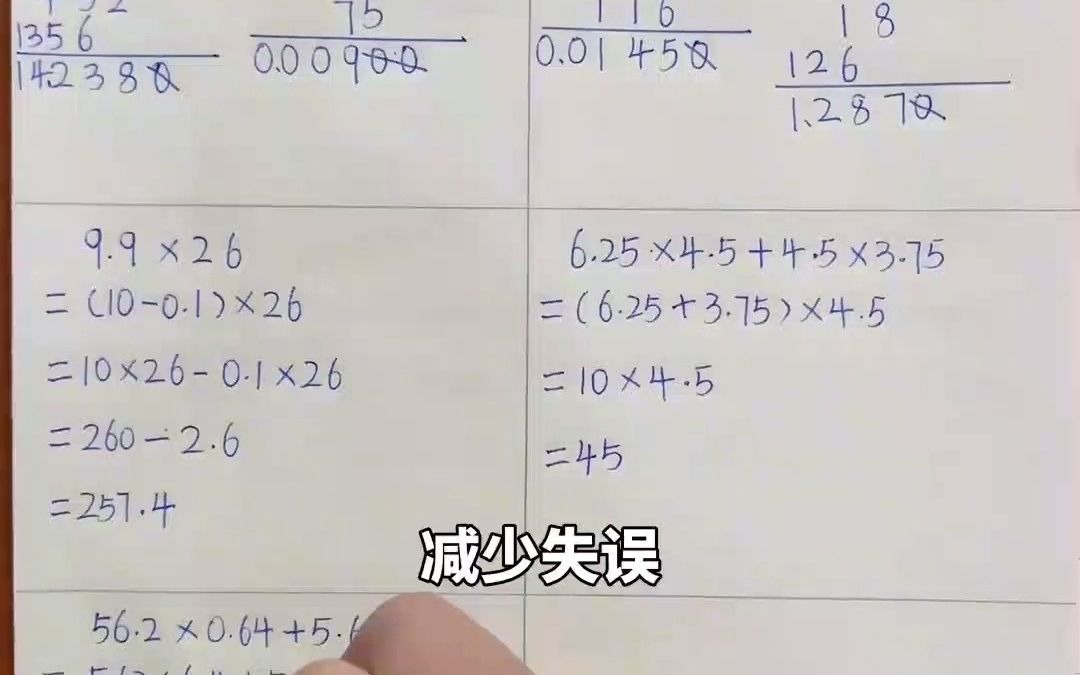 1356
142380
75
0.00900
116
0.01450
18
126
1.2870
9.9×26
=(10-0.1)×26
=10×26-0.1×26
=260-2.6
=257.4
6.25×4.5+4.5×3.75
=(6.25+3.75)×4.5
=10×4.5
=45
减少失误
56.2×0.64+5.6